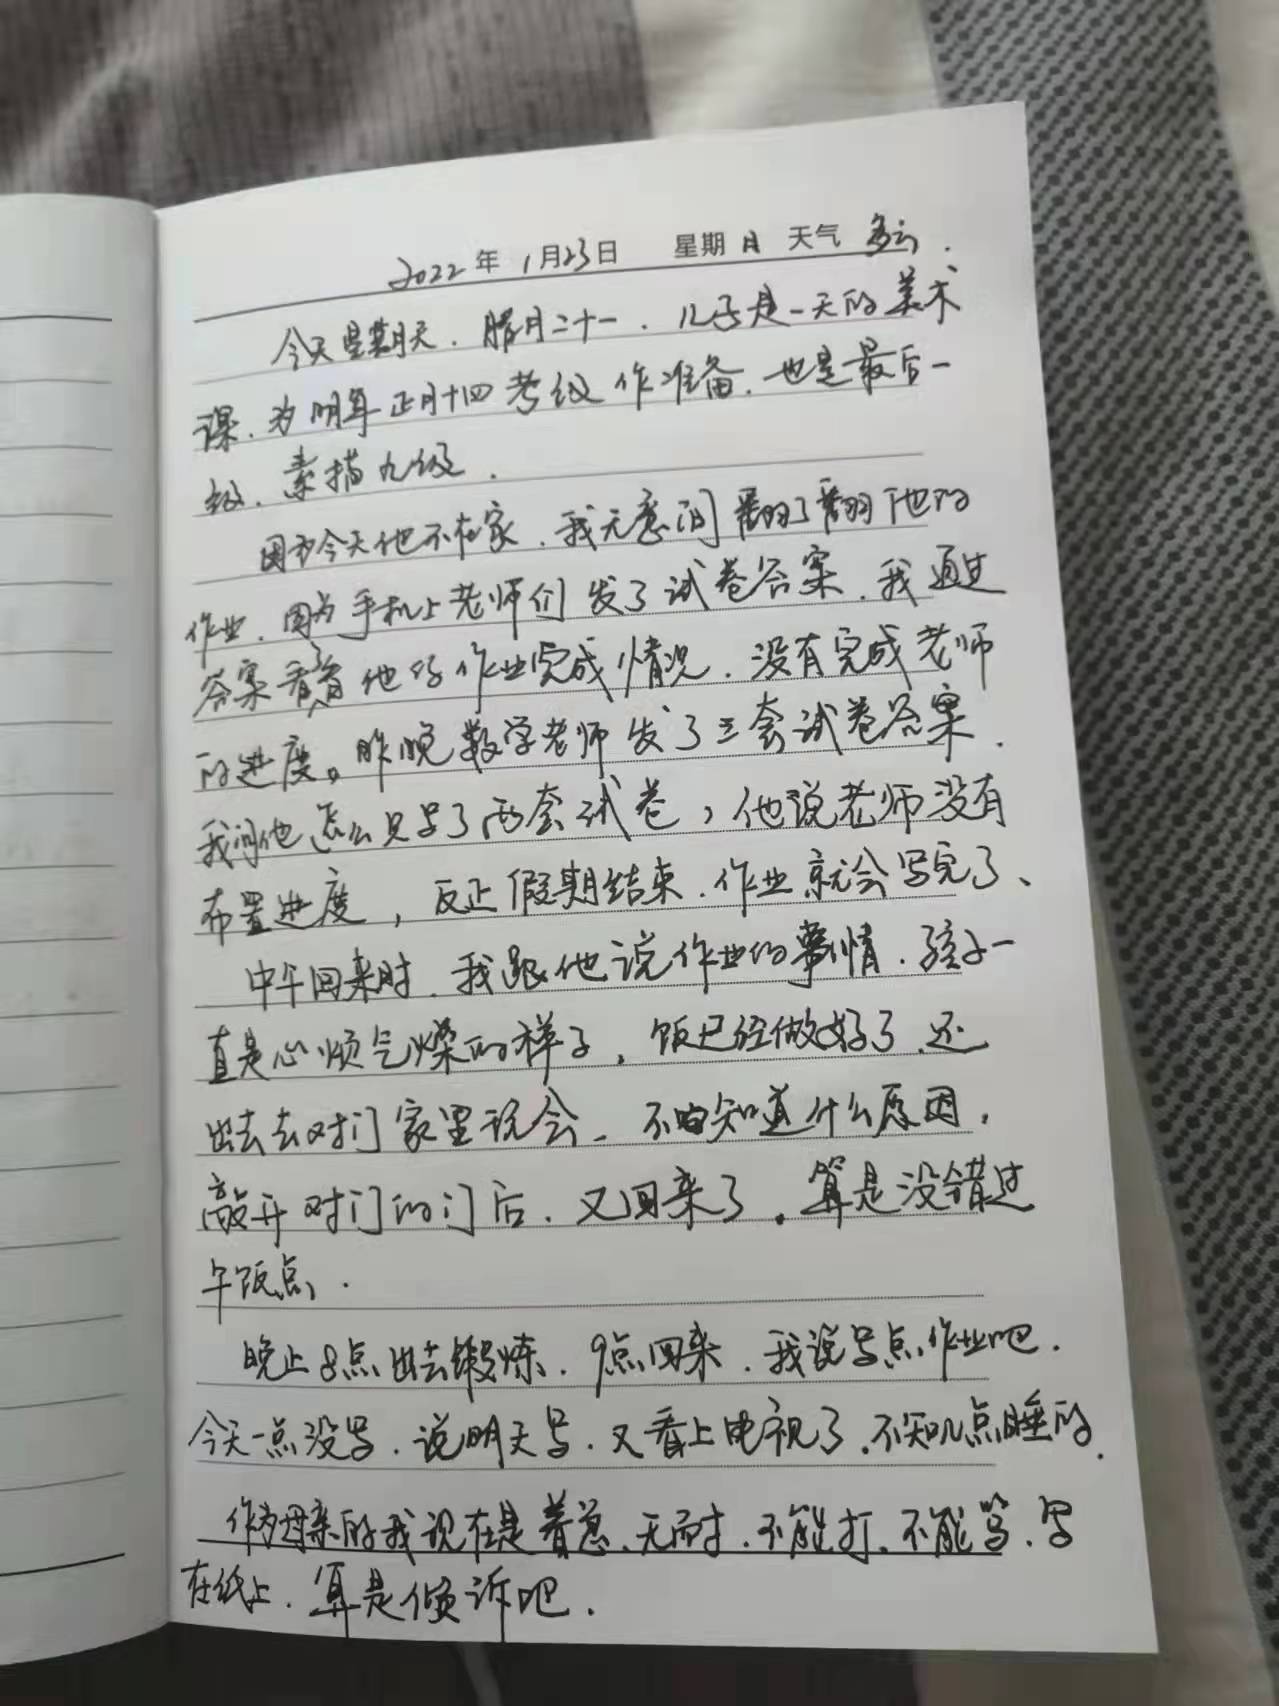 2022年1月23日 星期日 天气 多云.
今天星期天.腊月二十一.儿子是一天的美术
课.为明年正月十四考级作准备.也是最后一
级.素描九级.
因为今天他不在家.我无意间翻了翻他的
作业.因为手机上老师们发了试卷答案.我通过
答案看了看他的作业完成情况.没有完成老师
的进度。昨晚数学老师发了三套试卷答案.
我问他怎么只写了两套试卷,他说老师没有
布置进度,反正假期结束.作业就会写完了、
中午回来时.我跟他说作业的事情.孩子一
直是心烦气燥的样子,饭已经做好了.还
出去去对门家里玩会、不知道什么原因,
敲开对门的门后.又回来了.算是没错过
午饭点.
晚上8点出去锻炼.9点回来.我说写点作业吧.
今天一点没写.说明天写.又看上电视了.不知几点睡的.
作为母亲的我现在是着急、无耐.不能打.不能骂.写
在纸上.算是倾诉吧.